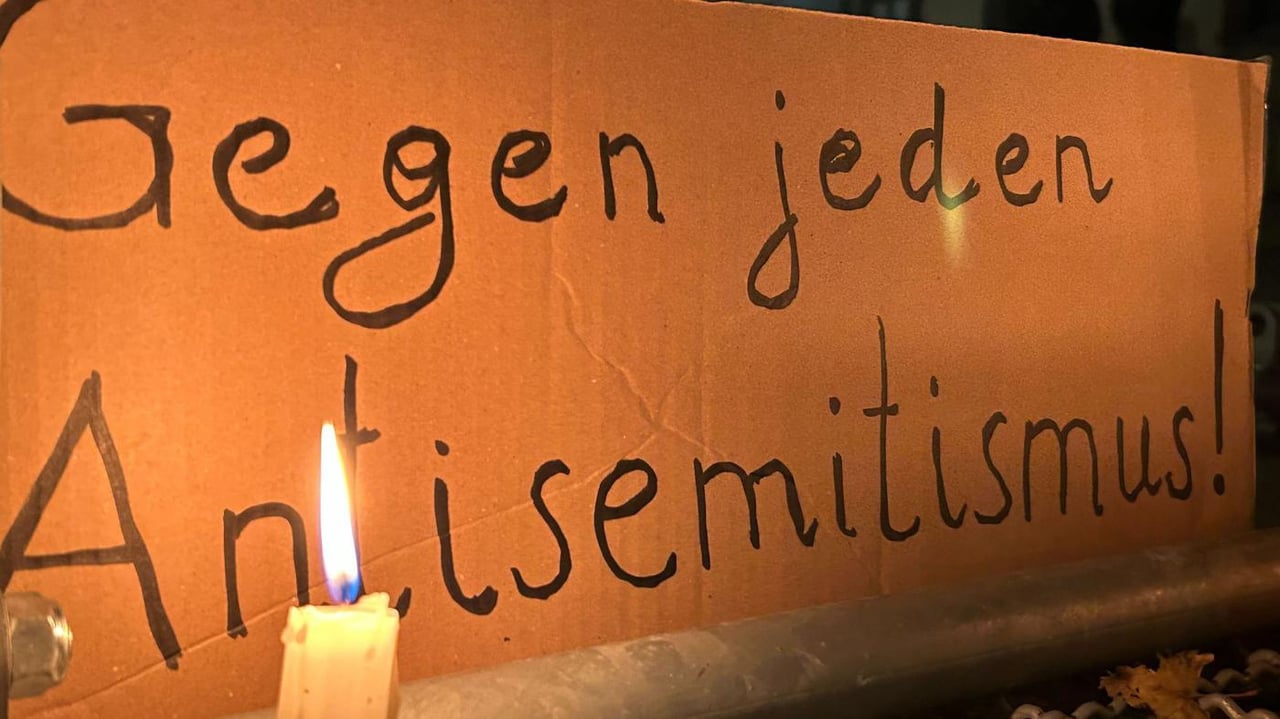 Gegen jeden
Antisemitismus!